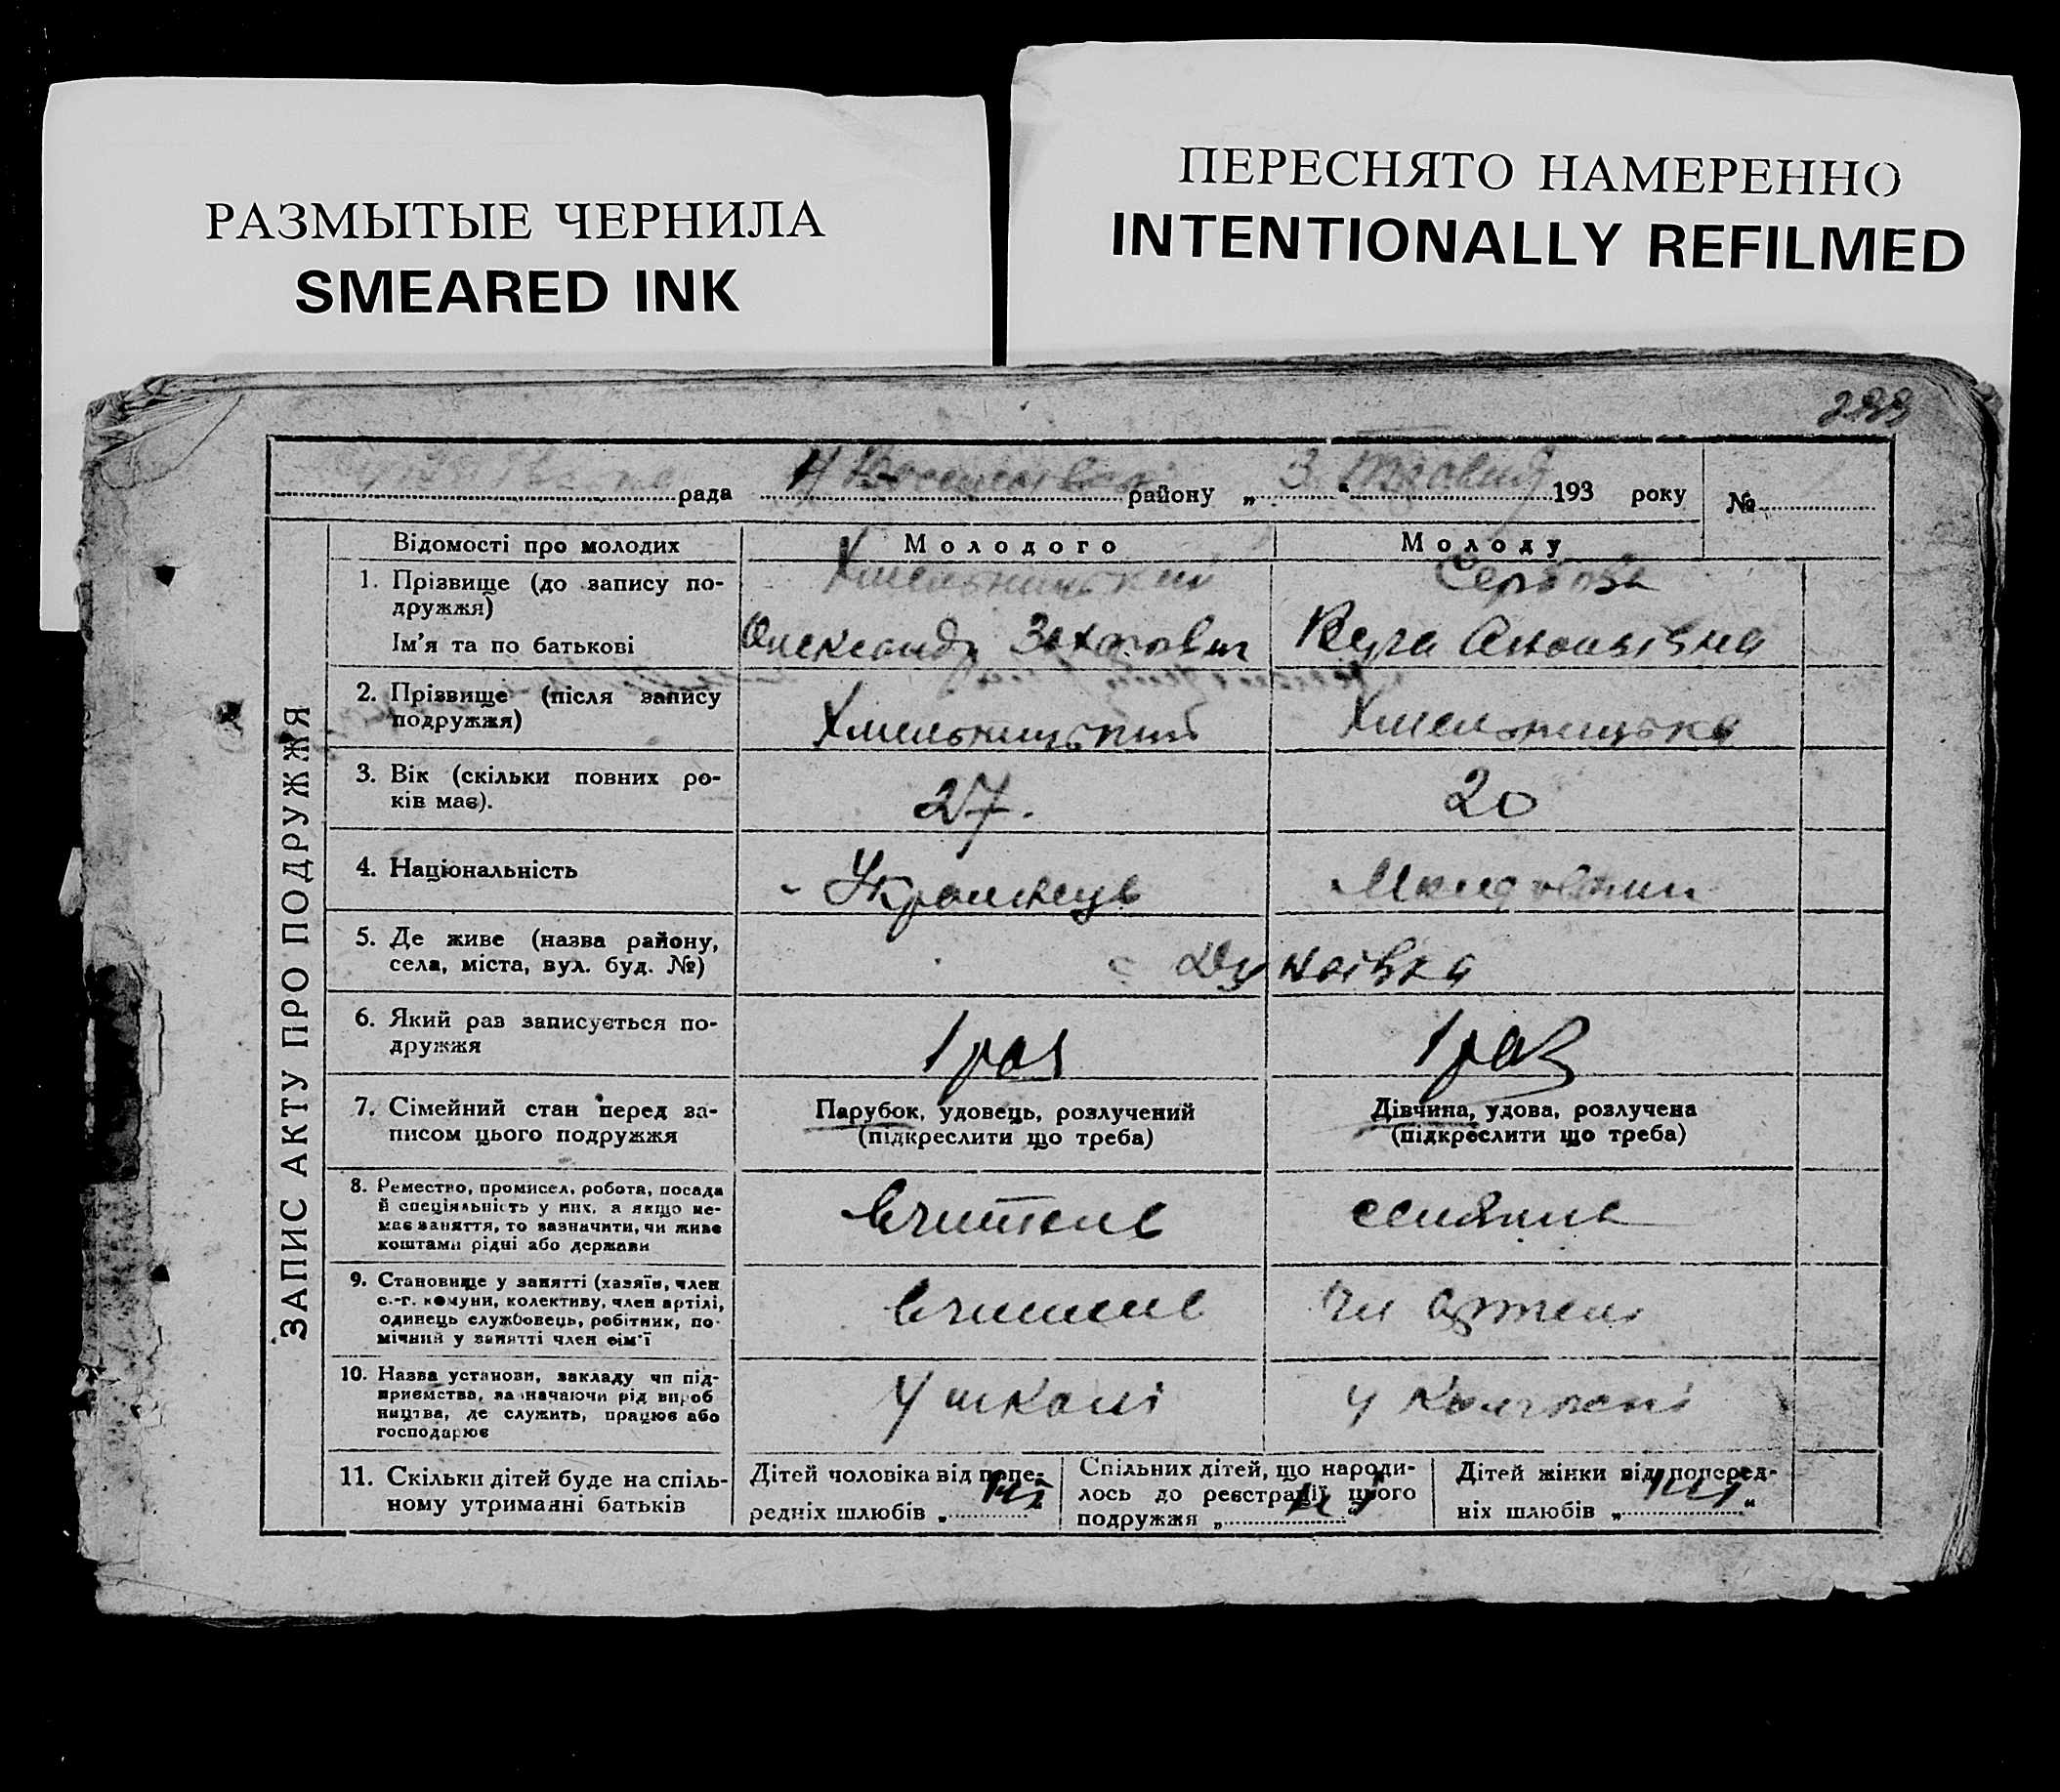 РАЗМЫТЫЕ ЧЕРНИЛА
SMEARED INK
ПЕРЕСНЯТО НАМЕРЕННО
INTENTIONALLY REFILMED
рада району „ 3 " 193 року №
ЗАПИС АКТУ ПРО ПОДРУЖЖЯ
Відомості про молодих Молодого Молоду
1. Прізвище (до запису по-
дружжя)
Хмельницький
Ім'я та по батькові
Олександр Захарович
2. Прізвище (після запису
подружжя)
Хмельницький Хмельницька
3. Вік (скільки повних ро-
ків має).
27. 20
4. Національність
Українець
5. Де живе (назва району,
села, міста, вул. буд. №)
6. Який раз записується по-
дружжя
1 раз 1 раз
7. Сімейний стан перед за-
писом цього подружжя
Парубок, удовець, розлучений
(підкреслити що треба)
Дівчина, удова, розлучена
(підкреслити що треба)
8. Ремество, промисел, робота, посада
й спеціяльність у них, а якщо не-
має заняття, то зазначити, чи живе
коштами рідні або держави
вчитель
9. Становище у занятті (хазяїн, член
с.-г. комуни, колективу, член артілі,
одинець службовець, робітник, по-
мічний у занятті член сім'ї
вчитель чл артели
10. Назва установи, закладу чи під-
приємства, зазначаючи рід вироб
ництва, де служить, працює або
господарює
У школі у колгоспі
11. Скільки дітей буде на спіль-
ному утриманні батьків
Дітей чоловіка від попе-
редніх шлюбів „
Спільних дітей, що народи-
лось до реєстрації цього
подружжя „
Дітей жінки від поперед-
ніх шлюбів „ "